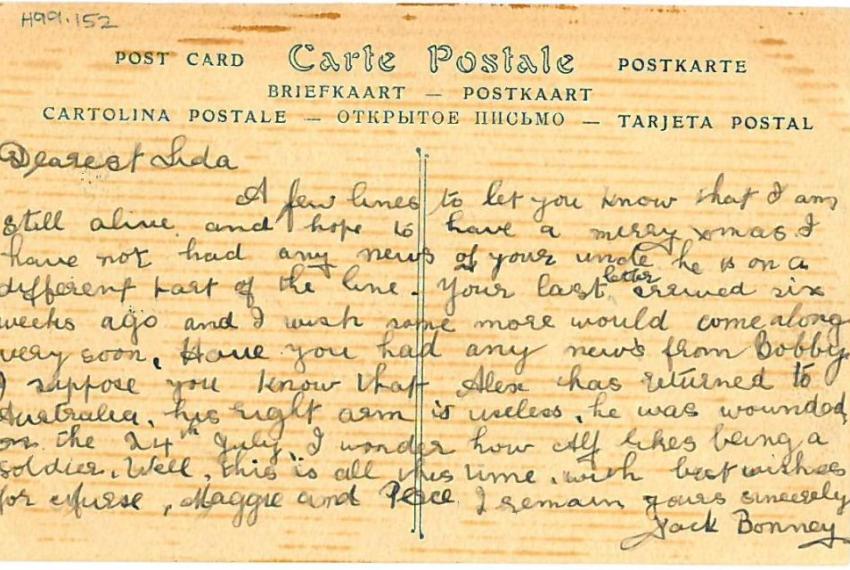 H99.152
POST CARD Carte Postale POSTKARTE
BRIEFKAART — POSTKAART
CARTOLINA POSTALE — ОТКРЫТОЕ ПИСЬМО — TARJETA POSTAL
Dearest Lida
A few lines to let you know that I am
still alive and hope to have a merry xmas I
have not had any news of your uncle he is on a
different part of the line. Your last letter arrived six
weeks ago and I wish some more would come along
very soon, Have you had any news from Bobby
I suppose you know that Alex has returned to
Australia, his right arm is useless, he was wounded
on the 24th July, I wonder how Alf likes being a
soldier, Well, this is all this time, with best wishes
for Nurse, Maggie and I remain yours sincerely
Jack Bonney